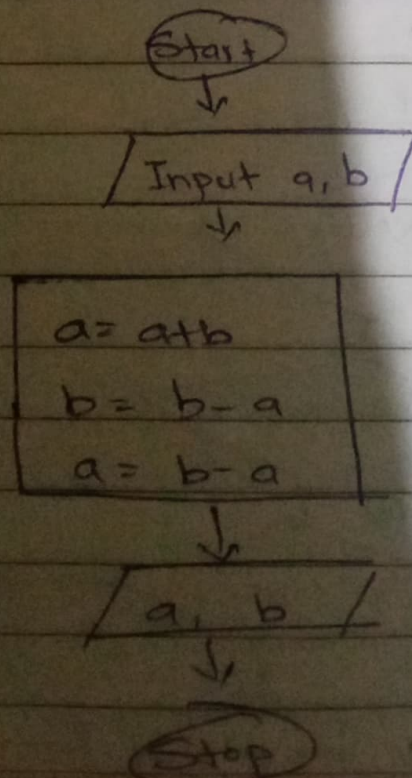 Start
Input a, b
a= a+b
b= b- a
a= b- a
a, b
Stop